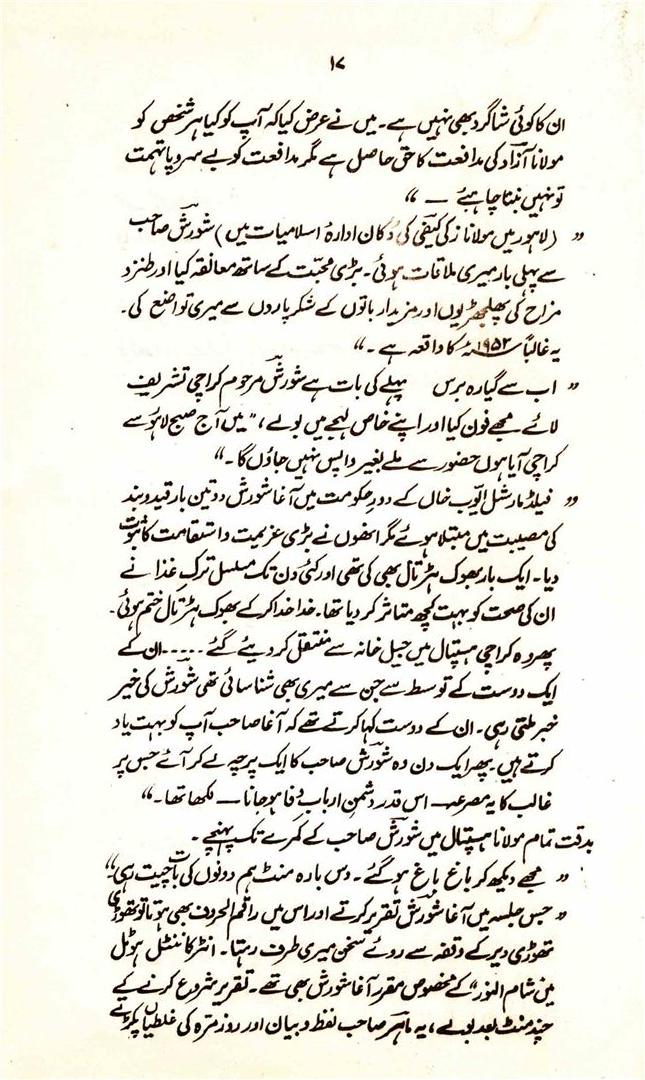 ۱۷
ان کا کوئی شاگرد بھی نہیں ہے۔ میں نے عرض کیا کہ آپ کو کیا ہر شخص کو
مولانا آزاد کی مدافعت کا حق حاصل ہے مگر مدافعت کو بے سروپا تہمت
تو نہیں بننا چاہیئے ــ "
" (لاہور میں مولانا زکی کیفی کی دُکان ادارۂ اسلامیات میں) شورش صاحب
سے پہلی بار میری ملاقات ہوئی۔ بڑی محبّت کے ساتھ معانقہ کیا اور طنز و
مزاح کی پھلجھڑیوں اور مزیدار باتوں کے شکر پاروں سے میری تواضع کی۔
یہ غالباً ۱۹۵۲ء کا واقعہ ہے۔"
" اب سے گیارہ برس پہلے کی بات ہے شورش مرحوم کراچی تشریف
لائے مجھے فون کیا اور اپنے خاص لہجے میں بولے، "میں آج صبح لاہور سے
کراچی آیا ہوں حضور سے ملے بغیر واپس نہیں جاؤں گا۔"
" فیلڈ مارشل ایوّب خاں کے دورِ حکومت میں آغا شورش دو تین بار قید و بند
کی مصیبت میں مبتلا ہوئے مگر انھوں نے بڑی عزیمت و استقامت کا ثبوت
دیا۔ ایک بار بھوک ہڑتال بھی کی تھی اور کئی دن تک مسلسل ترکِ غذا نے
ان کی صحت کو بہت کچھ متاثر کر دیا تھا۔ خدا خدا کر کے بھوک ہڑتال ختم ہوئی۔
پھر وہ کراچی ہسپتال میں جیل خانہ سے منتقل کر دیئے گئے ..... ان کے
ایک دوست کے توسط سے جن سے میری بھی شناسائی تھی شورش کی خیر
خبر ملتی رہی۔ ان کے دوست کہا کرتے تھے کہ آغا صاحب آپ کو بہت یاد
کرتے ہیں۔ پھر ایک دن وہ شورش صاحب کا ایک پرچہ لے کر آئے جس پر
غالب کا یہ مصرعہ ــ اس قدر دشمنِ اربابِ وفا ہو جانا ــ لکھا تھا۔"
بدقت تمام مولانا ہسپتال میں شورش صاحب کے کمرے تک پہنچے۔
" مجھے دیکھ کر باغ باغ ہو گئے۔ دس بارہ منٹ ہم دونوں کی بات چیت رہی۔"
" جس جلسہ میں آغا شورش تقریر کرتے اور اس میں راقم الحروف بھی ہوتا تو تھوڑی
تھوڑی دیر کے وقفہ سے روئے سخن میری طرف رہتا۔ انٹر کانٹنٹل ہوٹل
میں شام النور" کے مخصوص مقرر آغا شورش بھی تھے۔ تقریر شروع کرنے کے
چند منٹ بعد بولے، یہ ماہر صاحب لفظ و بیان اور روزمرہ کی غلطیاں پکڑتے